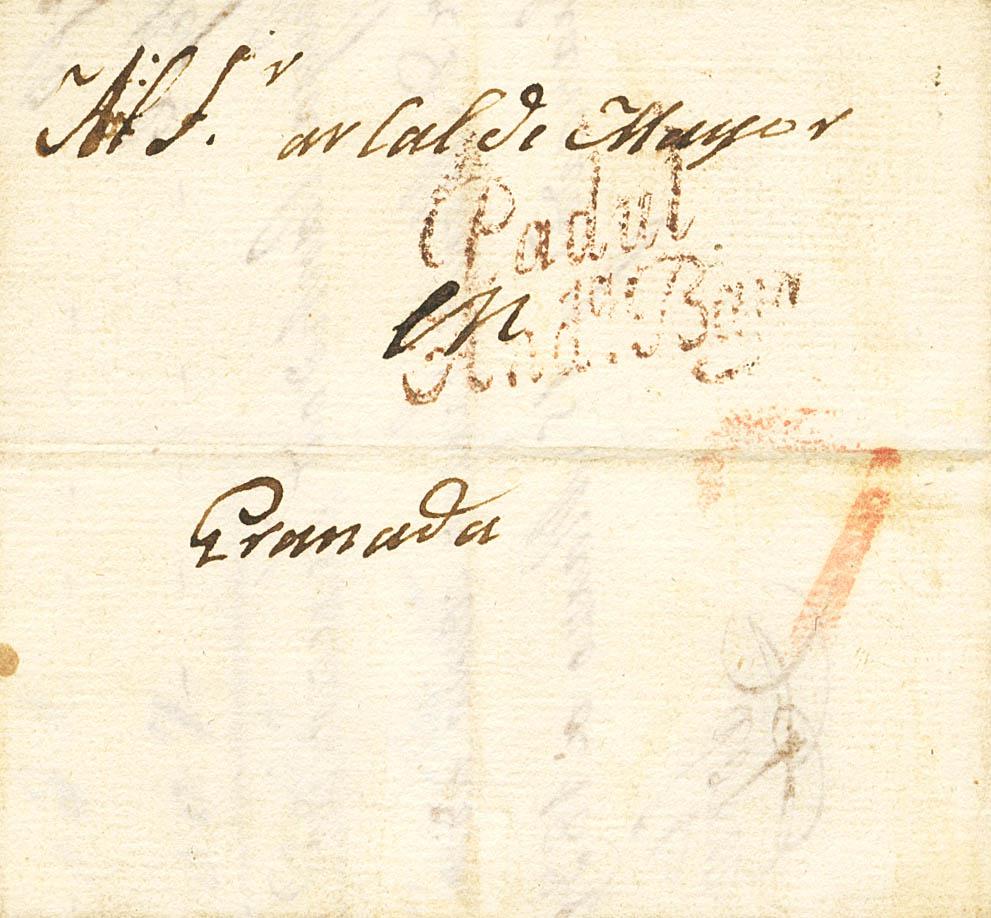 Al S.r arcalde Mayor
Padul
en
And.cia Baxa
Granada